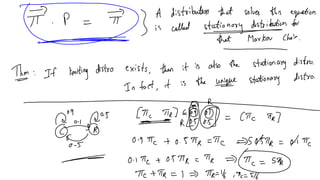 π · P = π
A distribution that solves this equation
is called stationary distribution for
that Markov Chain.
Thm: If limiting distro exists, then it is also the stationary distro.
In fact, it is the unique stationary distro.
0.9
0.1
0.5
0.5
C
R
[π_C π_R]
= [π_C π_R]
0.9 π_C + 0.5 π_R = π_C ⇒
0.1 π_C + 0.5 π_R = π_R ⇒ π_C = 5π_R
π_C + π_R = 1 ⇒ π_R = 1/6, π_C = 5/6